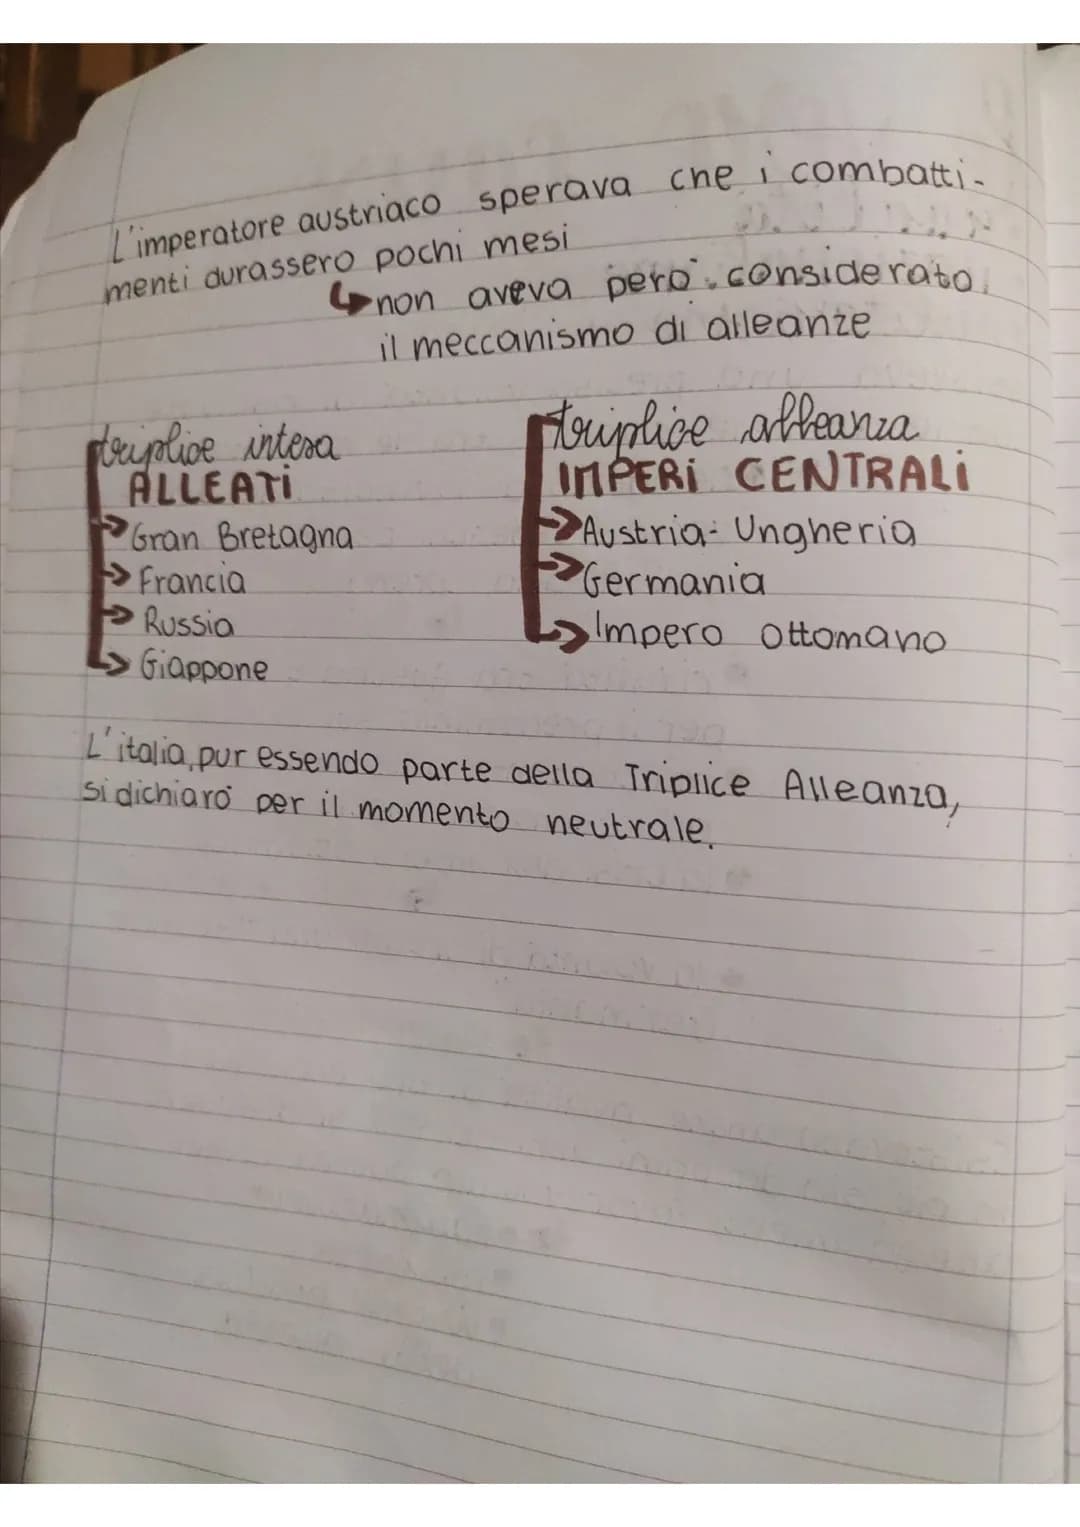 L'imperatore austriaco sperava che i combatti-
menti durassero pochi mesi
↳non aveva però considerato
il meccanismo di alleanze
triplice intesa
ALLEATI
→Gran Bretagna
→Francia
→Russia
→Giappone
triplice alleanza
IMPERI CENTRALI
→Austria-Ungheria
→Germania
→Impero Ottomano
L'italia, pur essendo parte della Triplice Alleanza,
si dichiarò per il momento neutrale.